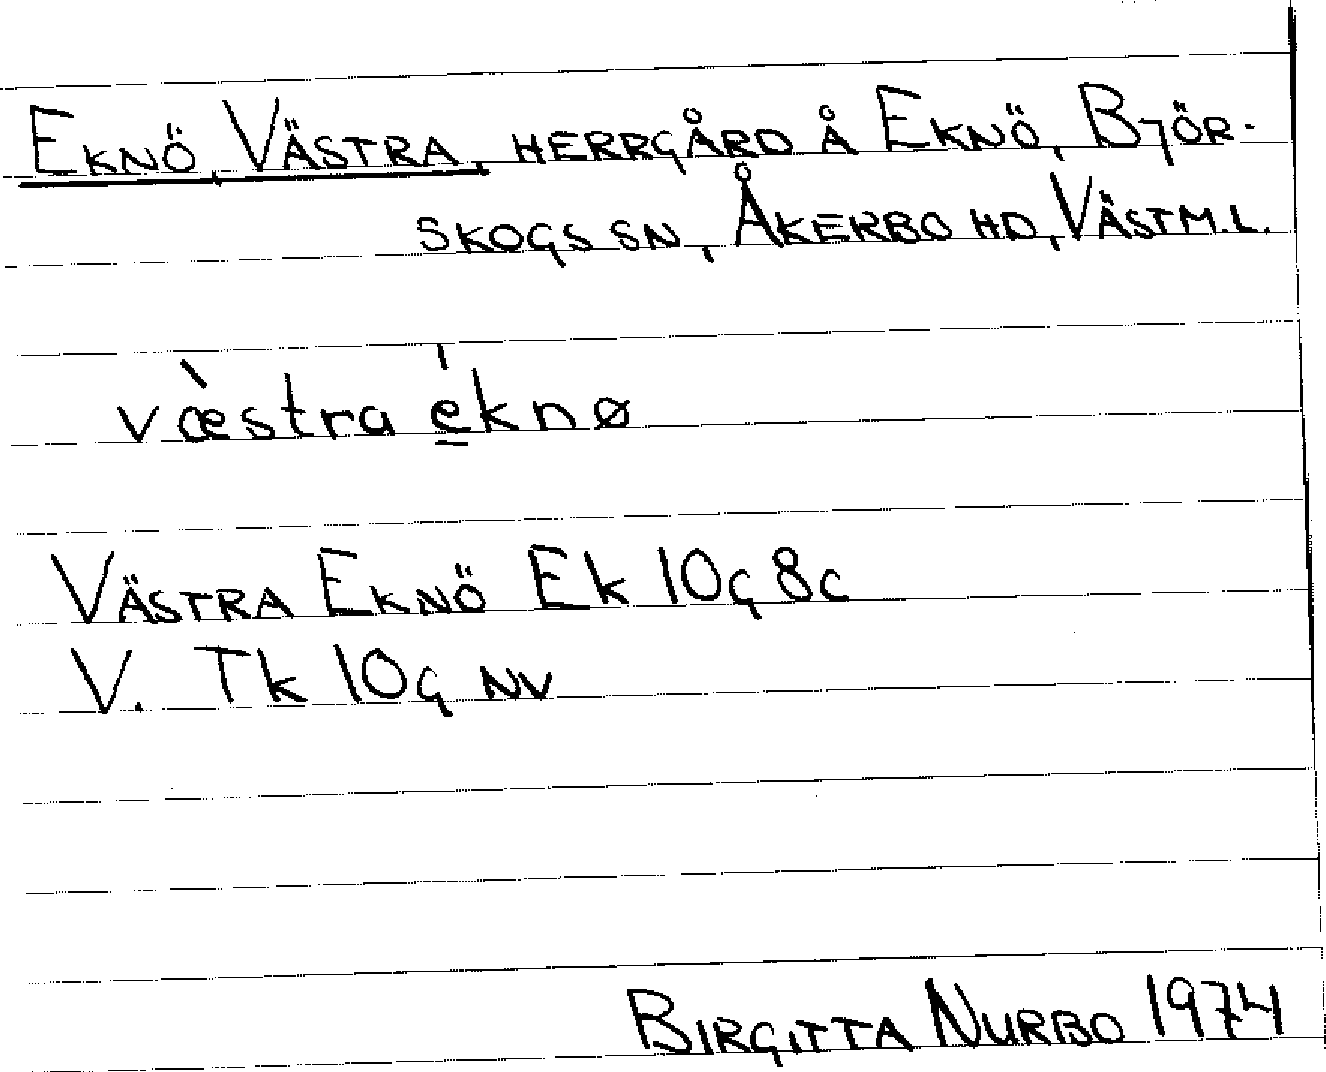 EKNÖ, VÄSTRA, HERRGÅRD Å EKNÖ, BJÖR-
SKOGS SN, ÅKERBO HD, VÄSTM.L.
væ̀stra é̱knø
VÄSTRA EKNÖ Ek 10g 8c
V. Tk 10g NV
BIRGITTA NURBO 1974